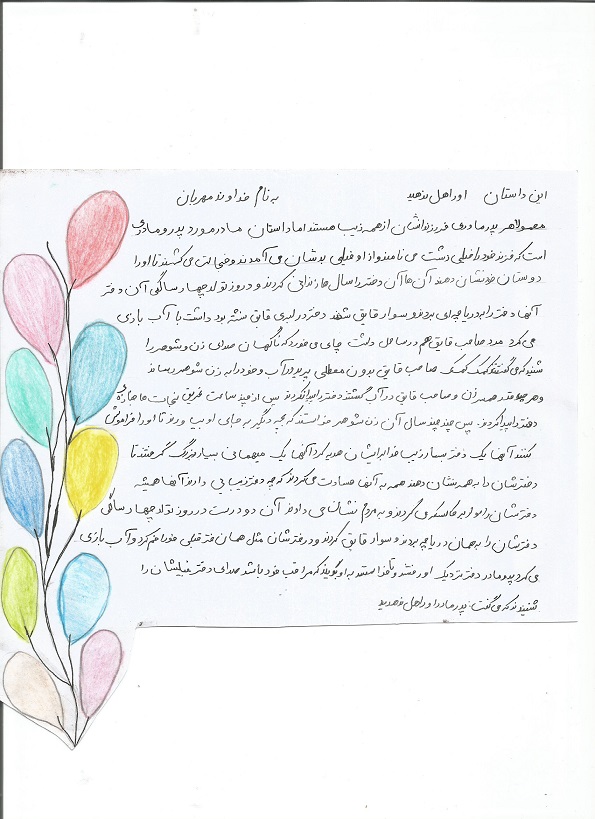 به نام خداوند مهربان
این داستان او را هل ندهید
معمولا هر پدر مادری فرزندانشان از همه زیب هستند اما داستان ما در مورد پدر و مادری
است که فرزند خود را خیلی دشت می نامند و از او خیلی بدشان می آمد و خجالت می کشند تا او را
دوستان خودنشان دهند آن ها آن دختر را سال ها زندانی کردند و در روز تولد چهار سالگی آن دختر
آنها دختر را به دریاچه ای بردند و سوار قایق شدند دختر در لبه ی قایق نشسته بود داشت با آب بازی
می کرد مرد صاحب قایق هم در ساحل داشت چای می خورد که ناگهان صدای زن و شوهر را
شنید که می گفتند کمک کمک صاحب قایق بدون معطلی پرید در آب و خود را به زن شوهر رساند
و هر چقدر زن و صاحب قایق در آب گشتند دختر را پیدا نکردند پس از چند ساعت غریق نجات ها جنازه ی
دختر را پیدا کردند. پس چند سال آن زن شوهر خواستند که بچه دیگر به جای او بیاورند تا او را فراموش
کنند آنها یک دختر بسیار زیبا خدا برایشان هدیه کرد آنها یک میهمانی بسیار بزرگ گرفتند تا
دخترشان را به همه نشان دهند همه به آنها حسادت می کردند که چه دختر زیبایی دارند آنها همیشه
دخترشان را سوار بر کالسکه می کردند و به مردم نشان می دادند آن دو درست در روز تولد چهار سالگی
دخترشان را به همان دریاچه بردند و سوار قایق کردند و دخترشان مثل همان دختر قبلی خود را خم کرد و آب بازی
می کرد پدر و مادر دختر نزدیک او رفتند و تا خواستند به او بگویند که مراقب خود باشد صدای دختر قبلیشان را
شنیدند که می گفت: پدر مادر او را هل ندهید